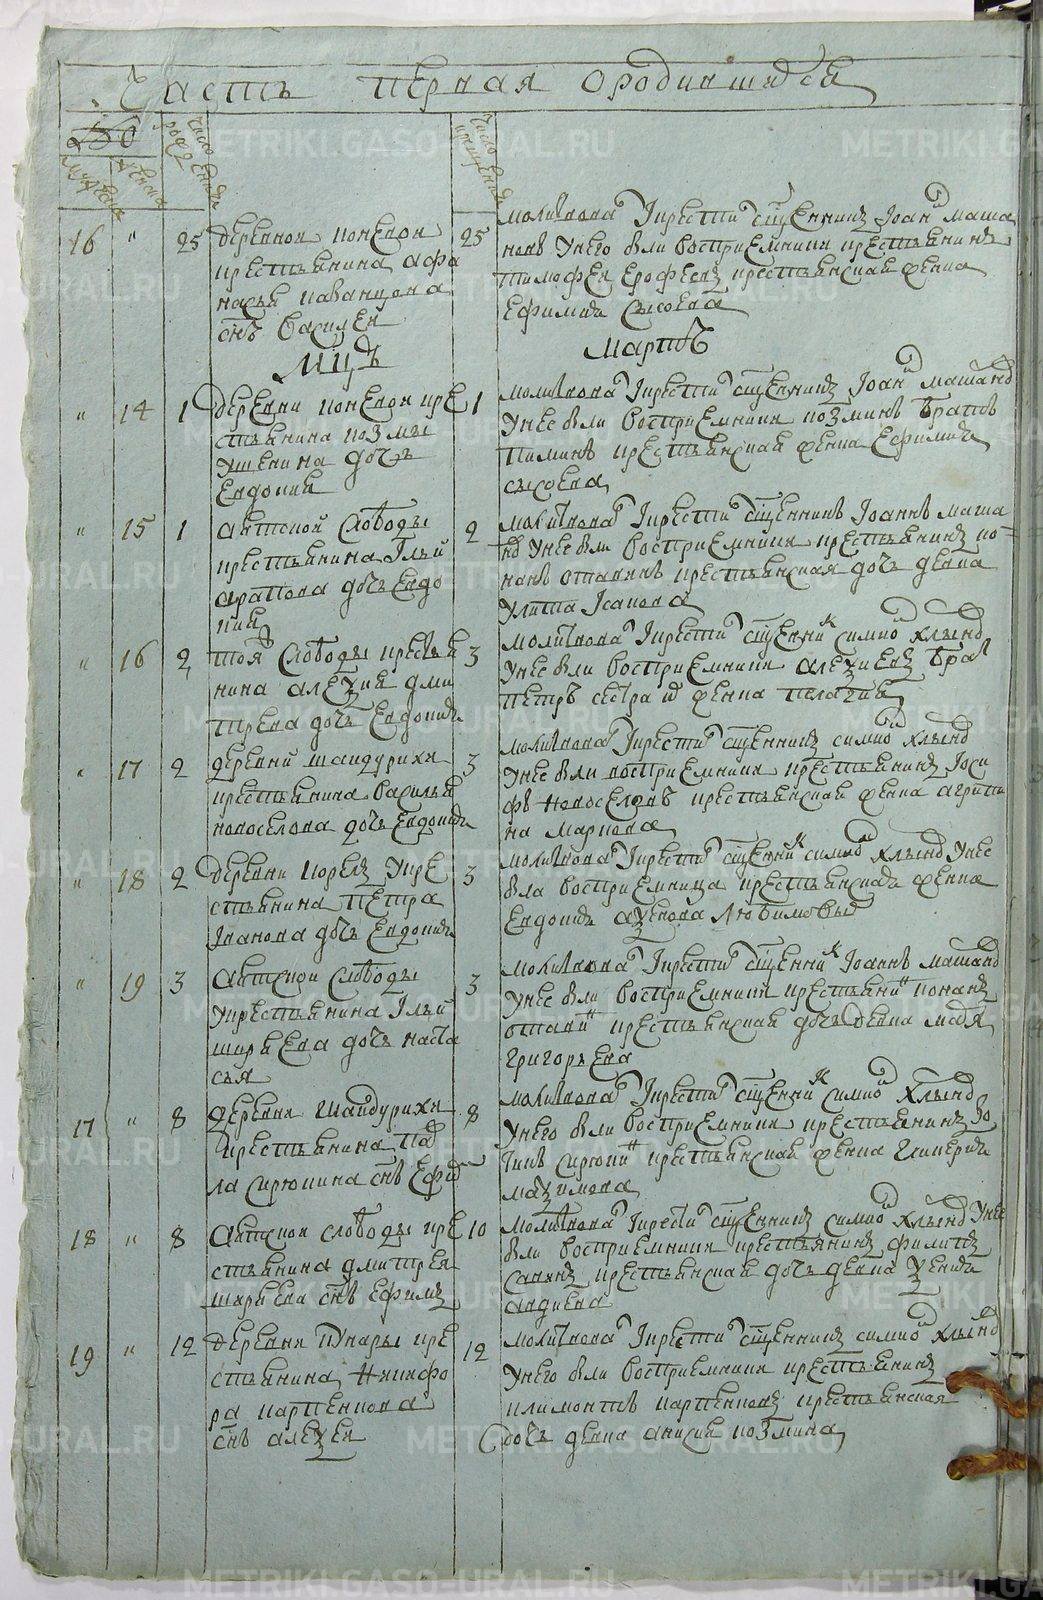 Часть первая о родившихся
Мужеска
Женска
Число рождениъ
Число крещениъ
16 " 25 деревни Коневой 25
крестьянина Афа
насья Казанцова
снъ Василей
молитвовалъ и крестилъ священникъ Iоаннъ Маша
новъ у него были восприемники крестьянинъ
Тимофей Ерофеевъ крестьянская женка
Ефимия Сысоева
Мцъ Мартъ
" 14 1 деревни Коневой кре 1
стьянина Козмы
Ушенина дочь
Евдокия
молитвовалъ и крестилъ священникъ Iоаннъ Машановъ
у нее были восприемники Козминъ братъ
Пиминъ крестьянская женка Ефимия
Сысоева
" 15 1 Аятской слободы 2
крестьянина Ильи
Арапова дочь Евдо
кия
молитвовалъ и крестилъ священникъ Iоаннъ Маша
новъ у нее были восприемники крестьянинъ Ко=
нонъ крестьянская дочь девка
Улита Исакова
" 16 2 той слободы крестья 3
нина Алексия Дми
триева дочь Евдокия
молитвовалъ и крестилъ священникъ Симионъ Хлыновъ
у нее были восприемники Алексиевъ братъ
Петръ сестра женка Пелагия
" 17 2 деревни Шайдурихи 3
крестьянина Василья
Новоселова дочь Евдокия
молитвовалъ и крестилъ священникъ Симионъ Хлыновъ
у нее были восприемники крестьянинъ Iоси
фъ Новоселовъ крестьянская женка Агрипи
на Маркова
" 18 2 деревни Корелъ у кре 3
стьянина Петра
Иванова дочь Евдокия
молитвовалъ и крестилъ священникъ Симионъ Хлыновъ у нее
была восприемница крестьянская женка
Евдокия
" 19 3 Аятской слободы 3
у крестьянина Ильи
Ширяева дочь Наста
сья
молитвовалъ и крестилъ священникъ Iоаннъ Машановъ
у нее были восприемники крестьянинъ Кононъ
крестьянская дочь девка
Григорьева
17 " 8 деревни Шайдурихи 8
крестьянина Пав
ла Сирюкина снъ Ефим
молитвовалъ и крестилъ священникъ Симионъ Хлыновъ
у него были восприемники крестьянинъ
крестьянская женка Гликерия
Максимова
18 " 8 Аятской слободы кре 10
стьянина Дмитрея
Ширяева снъ Ефимъ
молитвовалъ и крестилъ священникъ Симионъ Хлыновъ у нее
были восприемники крестьянинъ Филипъ
крестьянская дочь девка Ксения
Авдиева
19 " 12 деревни Кунары кре 12
стьянина Никифо
ра Парпенкова
снъ Алексей
молитвовалъ и крестилъ священникъ Симионъ Хлыновъ
у него были восприемники крестьянинъ
Климонтъ Парпенковъ крестьянская
дочь девка Анисия Козмина
METRIKI.GASO-URAL.RU